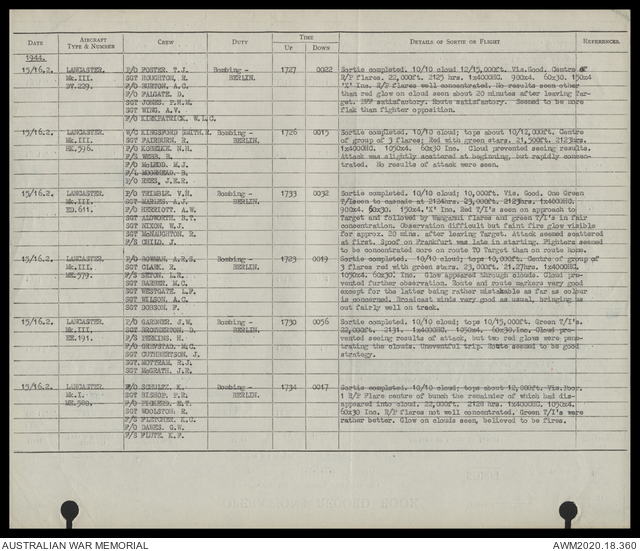 DATE AIRCRAFT TYPE & NUMBER CREW DUTY TIME UP DOWN DETAILS OF SORTIE OR FLIGHT REFERENCES.
1944.
15/16.2. LANCASTER. Mk.III. DV.229. Bombing - BERLIN. 1727 0022
F/O FOSTER. T.J.
SGT HOUGHTON, R.
F/O BURTON, A.C.
F/O FALGATE. D.
SGT JONES. P.H.M.
SGT WING. A.V.
F/O KIRKPATRICK. W.L.C.
Sortie completed. 10/10 cloud 12/15,000ft. Vis.Good. Centre of
R/P flares. 22,000ft. 2125 hrs. 1x4000HC. 900x4. 60x30. 150x4
'X' Inc. R/P flares well concentrated. No results seen other
than red glow on cloud seen about 20 minutes after leaving Tar-
get. IFF satisfactory. Route satisfactory. Seemed to be more
flak than fighter opposition.
15/16.2. LANCASTER. Mk.III. HK.596. Bombing - BERLIN. 1726 0015
W/C KINGSFORD SMITH.R.
SGT FAIRBURN, R.
F/O KOBELKE. N.H.
F/S WEBB. R.
F/O McLEOD. M.J.
F/L MOORHEAD. B.
P/O REES, J.E.R.
Sortie completed. 10/10 cloud; tops about 10/12,000ft. Centre
of group of 3 flares; Red with green stars. 21,500ft. 2123hrs.
1x4000HC. 1050x4. 60x30 Inc. Cloud prevented seeing results.
Attack was slightly scattered at beginning, but rapidly concen-
trated. No results of attack were seen.
15/16.2. LANCASTER. Mk.III. ED.611. Bombing - BERLIN. 1733 0032
F/O TRIMBLE. V.H.
SGT MARLES. A.J.
F/O HERRIOTT. A.W.
SGT ALDWORTH. B.T.
SGT NIXON. W.J.
SGT McNAUGHTON. R.
F/S CHILD. J.
Sortie completed. 10/10 cloud; 10,000ft. Vis. Good. One Green
T/I seen to cascade at 2124hrs. 23,000ft. 2123hrs. 1x4000HC.
900x4. 60x30. 150x4. 'X' Inc. Red T/I's seen on approach to
Target and followed by Wanganui flares and green T/I's in fair
concentration. Observation difficult but faint fire glow visible
for approx. 20 min. after leaving Target. Attack seemed scattered
at first. Spoof on Frankfurt was late in starting. Fighters seemed
to be concentrated more on route TO Target than on route home.
15/16.2. LANCASTER. Mk.III. ME.579. Bombing - BERLIN. 1723 0019
P/O BOWMAN. A.R.S.
SGT CLARK. R.
F/S SETON. L.R.
SGT BARBER. M.C.
SGT WESTGATE. L.F.
SGT WILSON. A.C.
SGT DOBSON. F.
Sortie completed. 10/10 cloud; tops 10,000ft. Centre of group of
3 flares red with green stars. 23,000ft. 21.27hrs. 1x4000HC.
1050x4. 60x30. Inc. Glow appeared through clouds. Cloud pre-
vented further observation. Route and route markers very good
except for the latter being rather mistakable as far as colour
is concerned. Broadcast winds very good as usual, bringing us
out fairly well on track.
15/16.2. LANCASTER. Mk.III. EE.191. Bombing - BERLIN. 1730 0056
F/O GARDNER. J.W.
SGT BROTHERTON. D.
F/S PERKINS. H.
F/O GREFSTAD. M.C.
SGT CUTHBERTSON. J.
SGT.MOTTRAM. R.J.
SGT McGRATH. J.R.
Sortie completed. 10/10 cloud; tops 10/15,000ft. Green T/I's.
22,000ft. 2131. 1x4000HC. 1050x4. 60x30.Inc. Cloud pre-
vented seeing results of attack, but two red glows were pene-
trating the clouds. Uneventful trip. Route seemed to be good
strategy.
15/16.2. LANCASTER. Mk.I. ME.580. Bombing - BERLIN. 1734 0017
P/O SCHULTZ. K.
SGT BISHOP. P.R.
SGT WOOLSTON. R.
F/S FLETCHER. K.U.
F/O DAWES. G.W.
F/S FLUTE. K.F.
Sortie completed. 10/10 cloud; tops about 12,000ft. Vis.Poor.
1 R/P Flare centre of bunch the remainder of which had dis-
appeared into cloud. 22,000ft. 2128 hrs. 1x4000HC. 1050x4.
60x30 Inc. R/P flares not well concentrated. Green T/I's were
rather better. Glow on clouds seen, believed to be fires.
AUSTRALIAN WAR MEMORIAL AWM2020.18.360